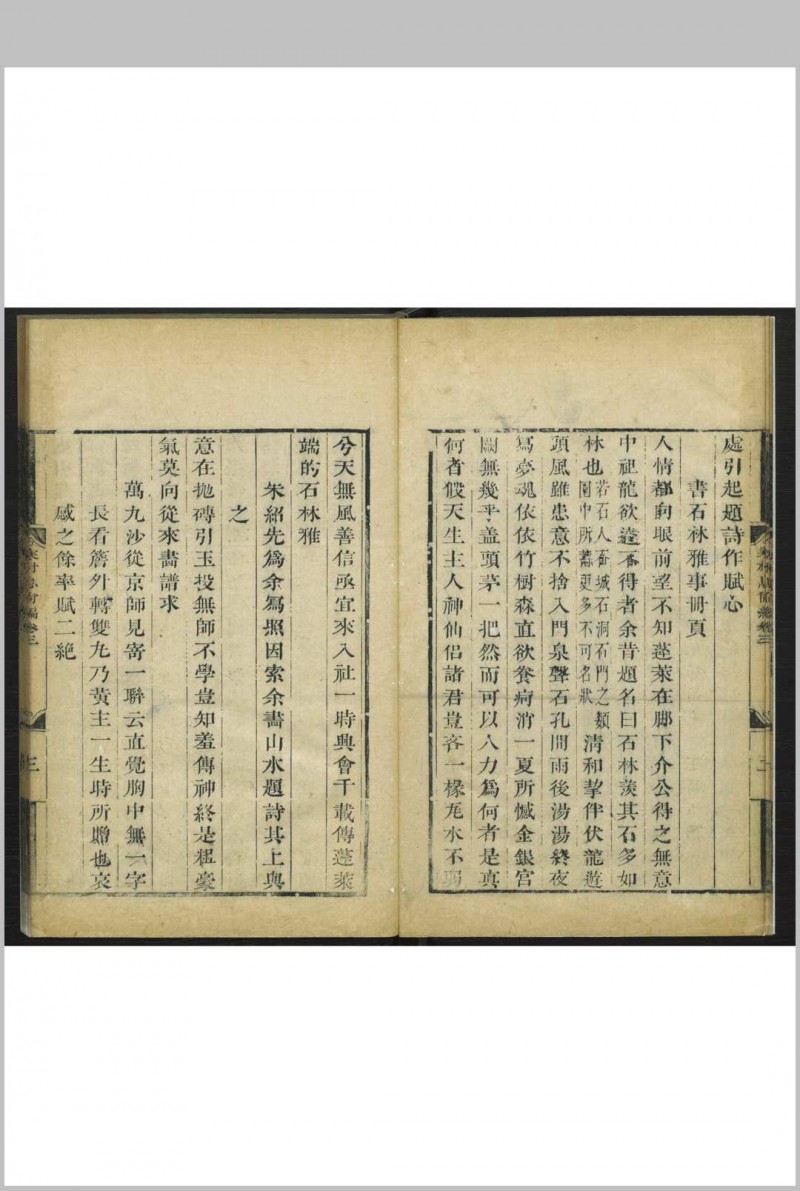 處引起題詩作賦心
書石林雅事冊頁
人情都向眼前望不知蓬萊在脚下介公得之無意
中祖龍欲遂不得者余昔題名曰石林羨其石多如
林也若石人石城石洞石門之類園中所蓄更多不可名狀清和挈伴伏龍遊
頭風雖患意不捨入門泉聲石孔間雨後湯湯終夜
寫夢魂依依竹樹森直欲養疴消一夏所憾金銀宮
闕無幾乎盖頭茅一把然而可以人力為何者是真
何者假天生主人神仙侶諸君豈吝一椽瓦水不弱
兮天無風善信亟宜來入社一時興會千載傳蓬萊
端的石林雅
朱紹先為余寫照因索余畵山水題詩其上與
之
意在拋磚引玉投無師不學豈知羞傳神終是粗豪
氣莫向從來畵譜求
萬九沙從京師見寄一聯云直覺胸中無一字
長看簷外轉雙丸乃黄主一生時所贈也哀
感之餘率賦二絶
三